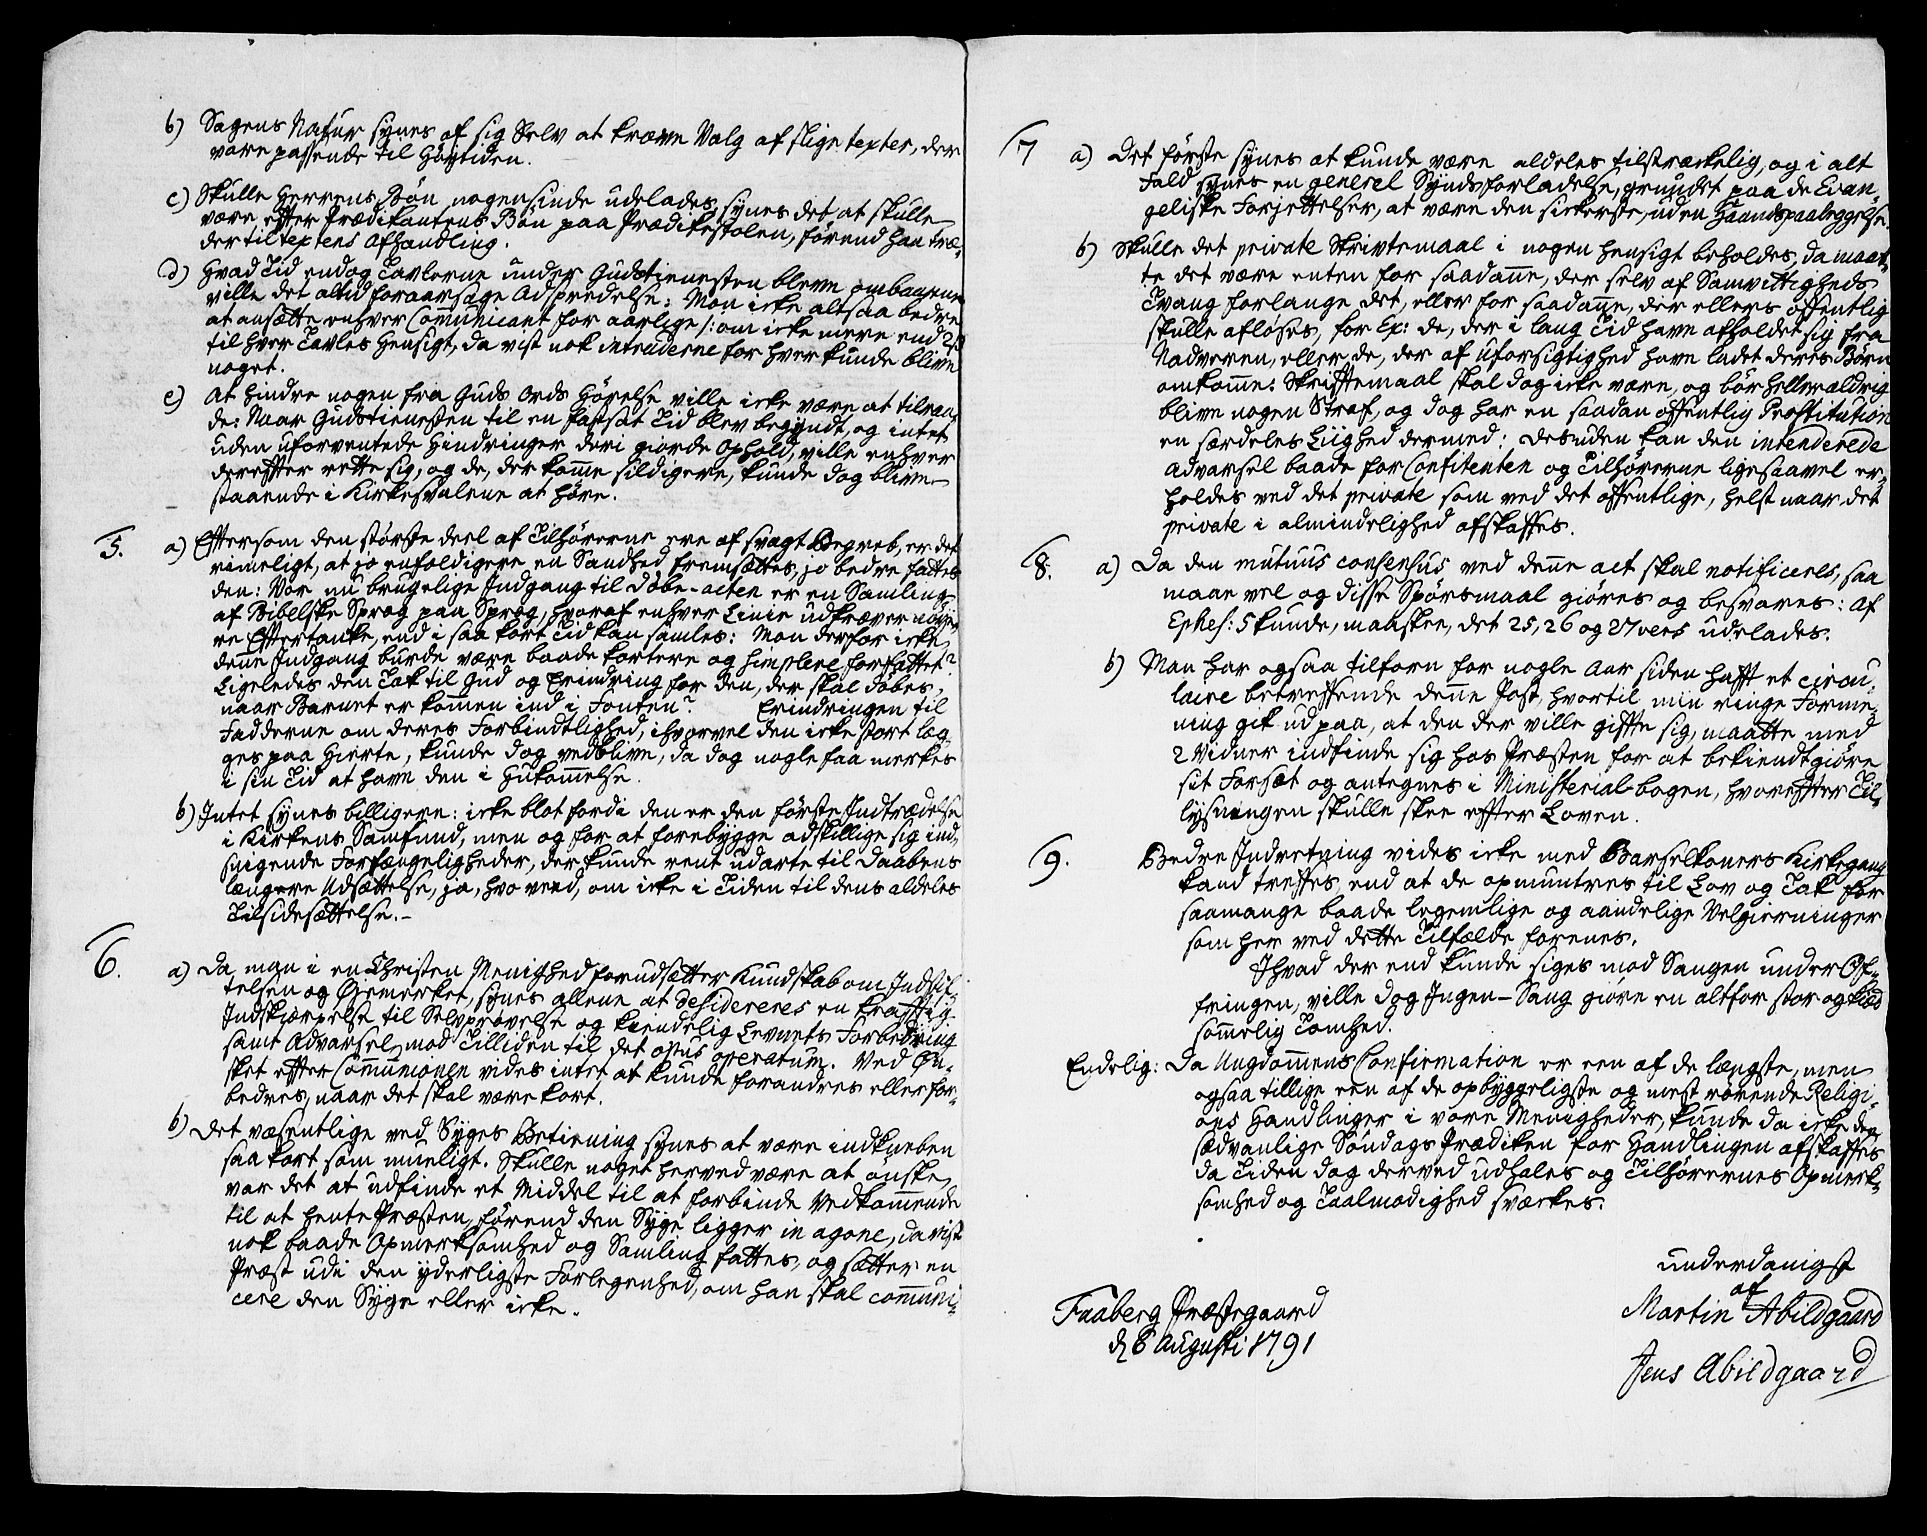 b) Sagens Natur synes af sig Selv at kræve Valg af slige texter, der
vare passende til Høytiden.
c) Skulle Herrens Bøn nogensinde udelades, synes det, at skulle
være efter Prædikantens Bøn paa Prædikestolen, førend han træ-
der til textens Afhandling.
d) Hvad Tid endog Tavlerne under Gudstienesten bleve ombaarne
ville det altid foraarsage Adspredelse: Mon ikke altsaa bedre
at ansætte enhver Communicant for aarlige /: om ikke mere end 2
til hver Tavles Hensigt, da vist nok intraderne for hver kunde blive
noget.
e) At hindre nogen fra Guds Ords Hørelse ville ikke være at tilraa-
de: Naar Gudstienesten til en fastsat Tid blev begyndt, og intet
uden uforventede Hindringer deri giorde Ophold, ville enhver
derefter rette sig, og de, der komme sildigere, kunde dog blive
staaende i Kirkesvalene at høre.
5. a) Eftersom den største deel af Tilhørerne ere af svagt Begreb, er det
rimeligt, at jo enfoldigere en Sandhed fremsættes, jo bedre fattes
den: Vor nu brugelige Indgang til Døbe-acten er en Samling
af Bibelske Sprog paa Sprog, hvoraf enhver Linie udkræver nøye-
re Eftertanke, end i saa kort Tid kan samles: Mon derfor ikke
denne Indgang burde være baade kortere og simplere forfattet?
Ligeledes den Tak til Gud og Erindring for den, der skal døbes,
naar Barnet er kommen ind i Fonten? Erindringen til
Fadderne om deres Forbindtlighed, ihvorvel den ikke stort læg-
ges paa Hierte, kunde dog vedblive, da dog nogle faa merkes
i sin Tid at have den i Hukommelse.
b) Intet synes billigere: ikke blot fordi den er den første Indtrædelse
i Kirkens Samfund, men og for at forebygge adskillige sig ind-
snigende Forfængeligheder, der kunde rent udarte til Daabens
længere Udsættelse, ja, hvo veed, om ikke i Tiden til dens aldeles
Tilsidesættelse.-
6. a) Da man i en Christen Menighed forudsætter Kundskab om Indstif-
telsen og Øyemerket, synes allene at desidereres en kraftig
Indskjærpelse til Selvprøvelse og kiendelig Levnets Forbedring
samt Advarsel mod Tilliden til det opus operatum. Ved Øn-
sket efter Communionen vides intet at kunde forandres eller for-
bedres, naar det skal være kort.
b) Det væsentlige ved Syges Betiening synes at være indkneben
saa kort som mueligt. Skulle noget herved være at ønske,
var det at udfinde et Middel til at forbinde Vedkommende
til at hente Præsten, førend den Syge ligger in agone, da vist
nok baade Opmerksomhed og Samling fattes, og sætter en
Præst udi den yderligste Forlegenhed, om han skal communi-
cere den Syge eller ikke.
7 a) Det første synes at kunde være aldeles tilstrækkelig, og i alt
Fald synes en generel Synds forladelse, grundet paa de Evan-
geliske Forjettelser, at være den sikkerste, uden Haandspaaleggelse.
b) Skulle det private Skrivtemaal i nogen Hensigt beholdes, da maat-
te det være enten for saadanne, der selv af Samvittigheds
Tvang forlange det, eller for saadanne, der ellers offentlig
skulle afløses, for Ex: de, der i lang Tid have afholdet sig fra
Nadveren, eller de, der af uforsigtighed have ladet deres Børn
omkomme: Skriftemaal skal dog ikke være, og bør heller aldrig
blive nogen Straf, og dog har en saadan offentlig Prostitution
en særdeles Liighed dermed: Desuden kan den intenderede
Advarsel baade for Confitenten og Tilhørerne ligesaavel er-
holdes ved det private som ved det offentlige, helst naar det
private i almindelighed afskaffes.
8. a) Da den mutuus consensus ved denne act skal notificeres, saa
maae vel og disse Spørsmaal giøres og besvares: Af
Ephes: 5 kunde, maaskee, det 25, 26 og 27 vers udelades.
b) Man har ogsaa tilforn for nogle Aar siden hafft et circu-
laire betreffende denne Post, hvortil min ringe Forme-
ning gik ud paa, at den der ville gifte sig, maatte med
2 Vidner indfinde sig hos Præsten for at bekiendtgiøre
sit Forsæt og antegnes i Ministerial-bogen, hvorefter Til-
lysningen skulle skee efter Loven.
9. Bedre Indretning vides ikke med Barselkoners Kirkegang
kand treffes, end at de opmuntres til Lov og Tak for
saamange baade legemlige og aandelige Velgierninger
som her ved dette Tilfælde forenes.
Ihvad der end kunde siges mod Sangen under Of-
fringen, ville dog Ingen-Sang giøre en altfor stor og kied-
sommelig Tomhed.
Endelig: Da Ungdommens Confirmation er een af de længste, men
ogsaa tillige een af de opbyggeligste og mest rørende Religi-
ons Handlinger i vore Menigheder, kunde da ikke den
sædvanlige Søndags Prædiken for Handlingen afskaffes
da Tiden dog derved udhales og Tilhørernes Opmerk-
somhed og Taalmodighed svækkes.
underdanigst
af
Faaberg Præstegaard
d 8 Augusti 1791
Martin Abildgaard
Jens Abildgaard